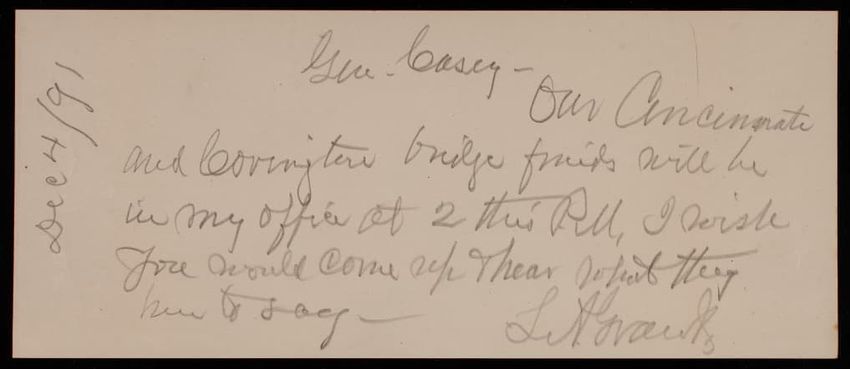 Dec 4/91
Gen. Casey -
Our Cincinnati
and Covington bridge friends will be
in my office at 2 this P.M, I wish
you would come up & hear what they
have to say -
L A Grant